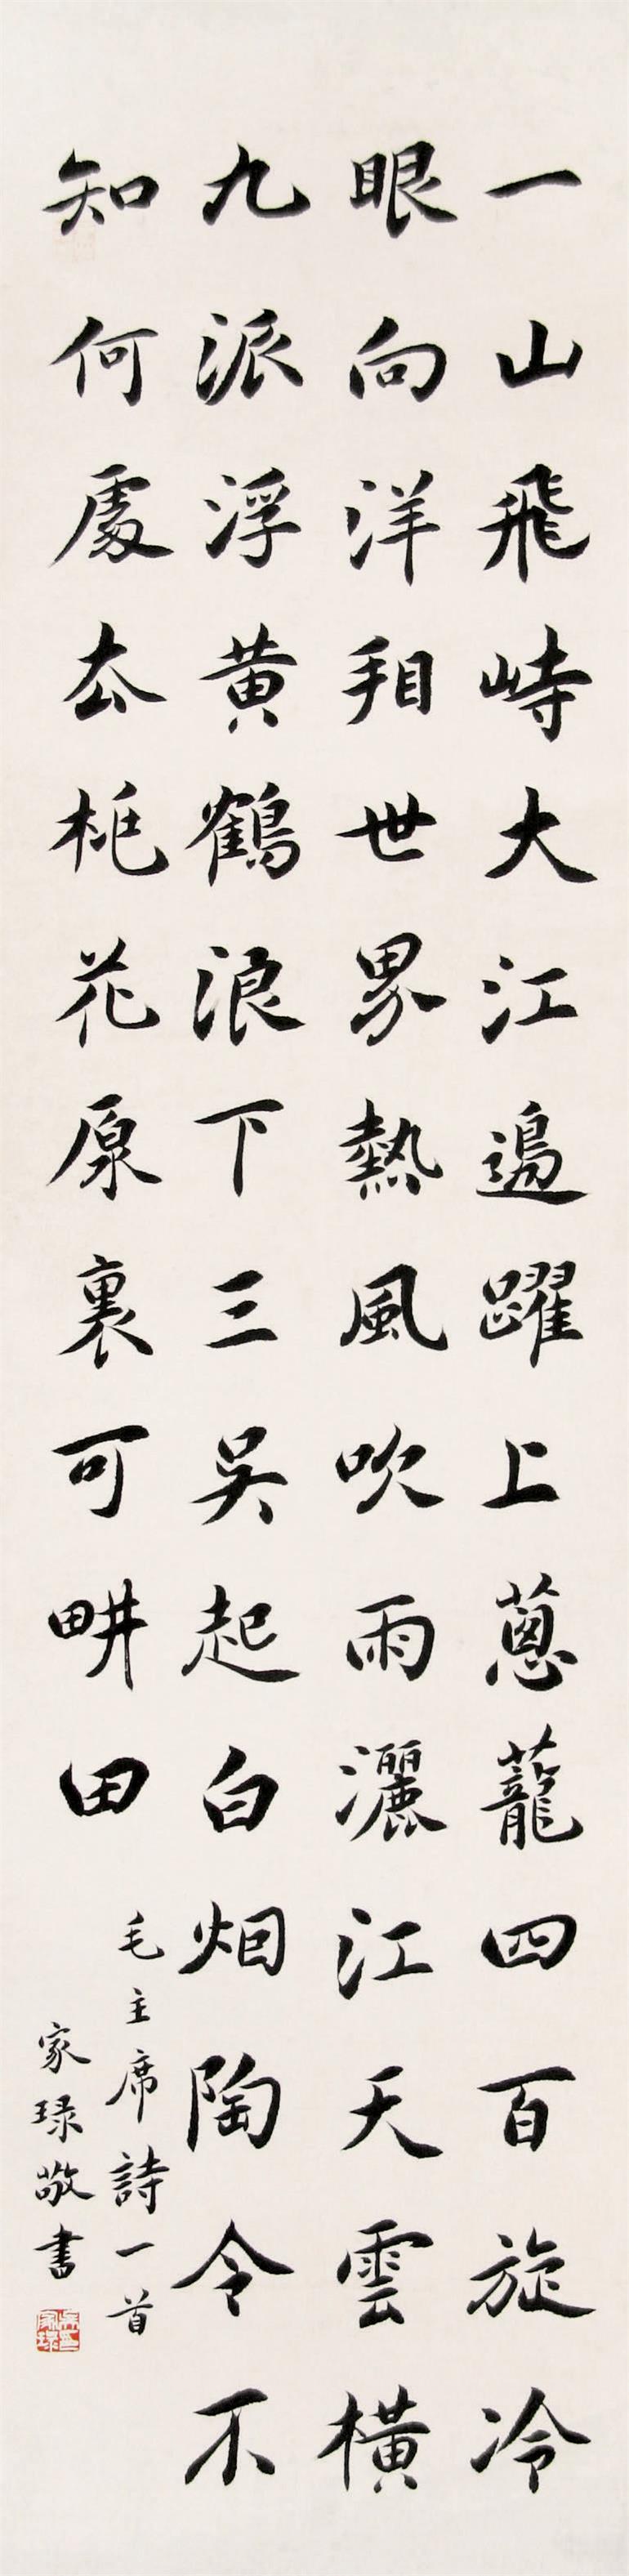 一山飛峙大江邊躍上蔥蘢四百旋冷
眼向洋㸔世界熱風吹雨灑江天雲橫
九派浮黄鶴浪下三吳起白烟陶令不
知何處去桃花源裏可畊田
毛主席詩一首
家琭敬書